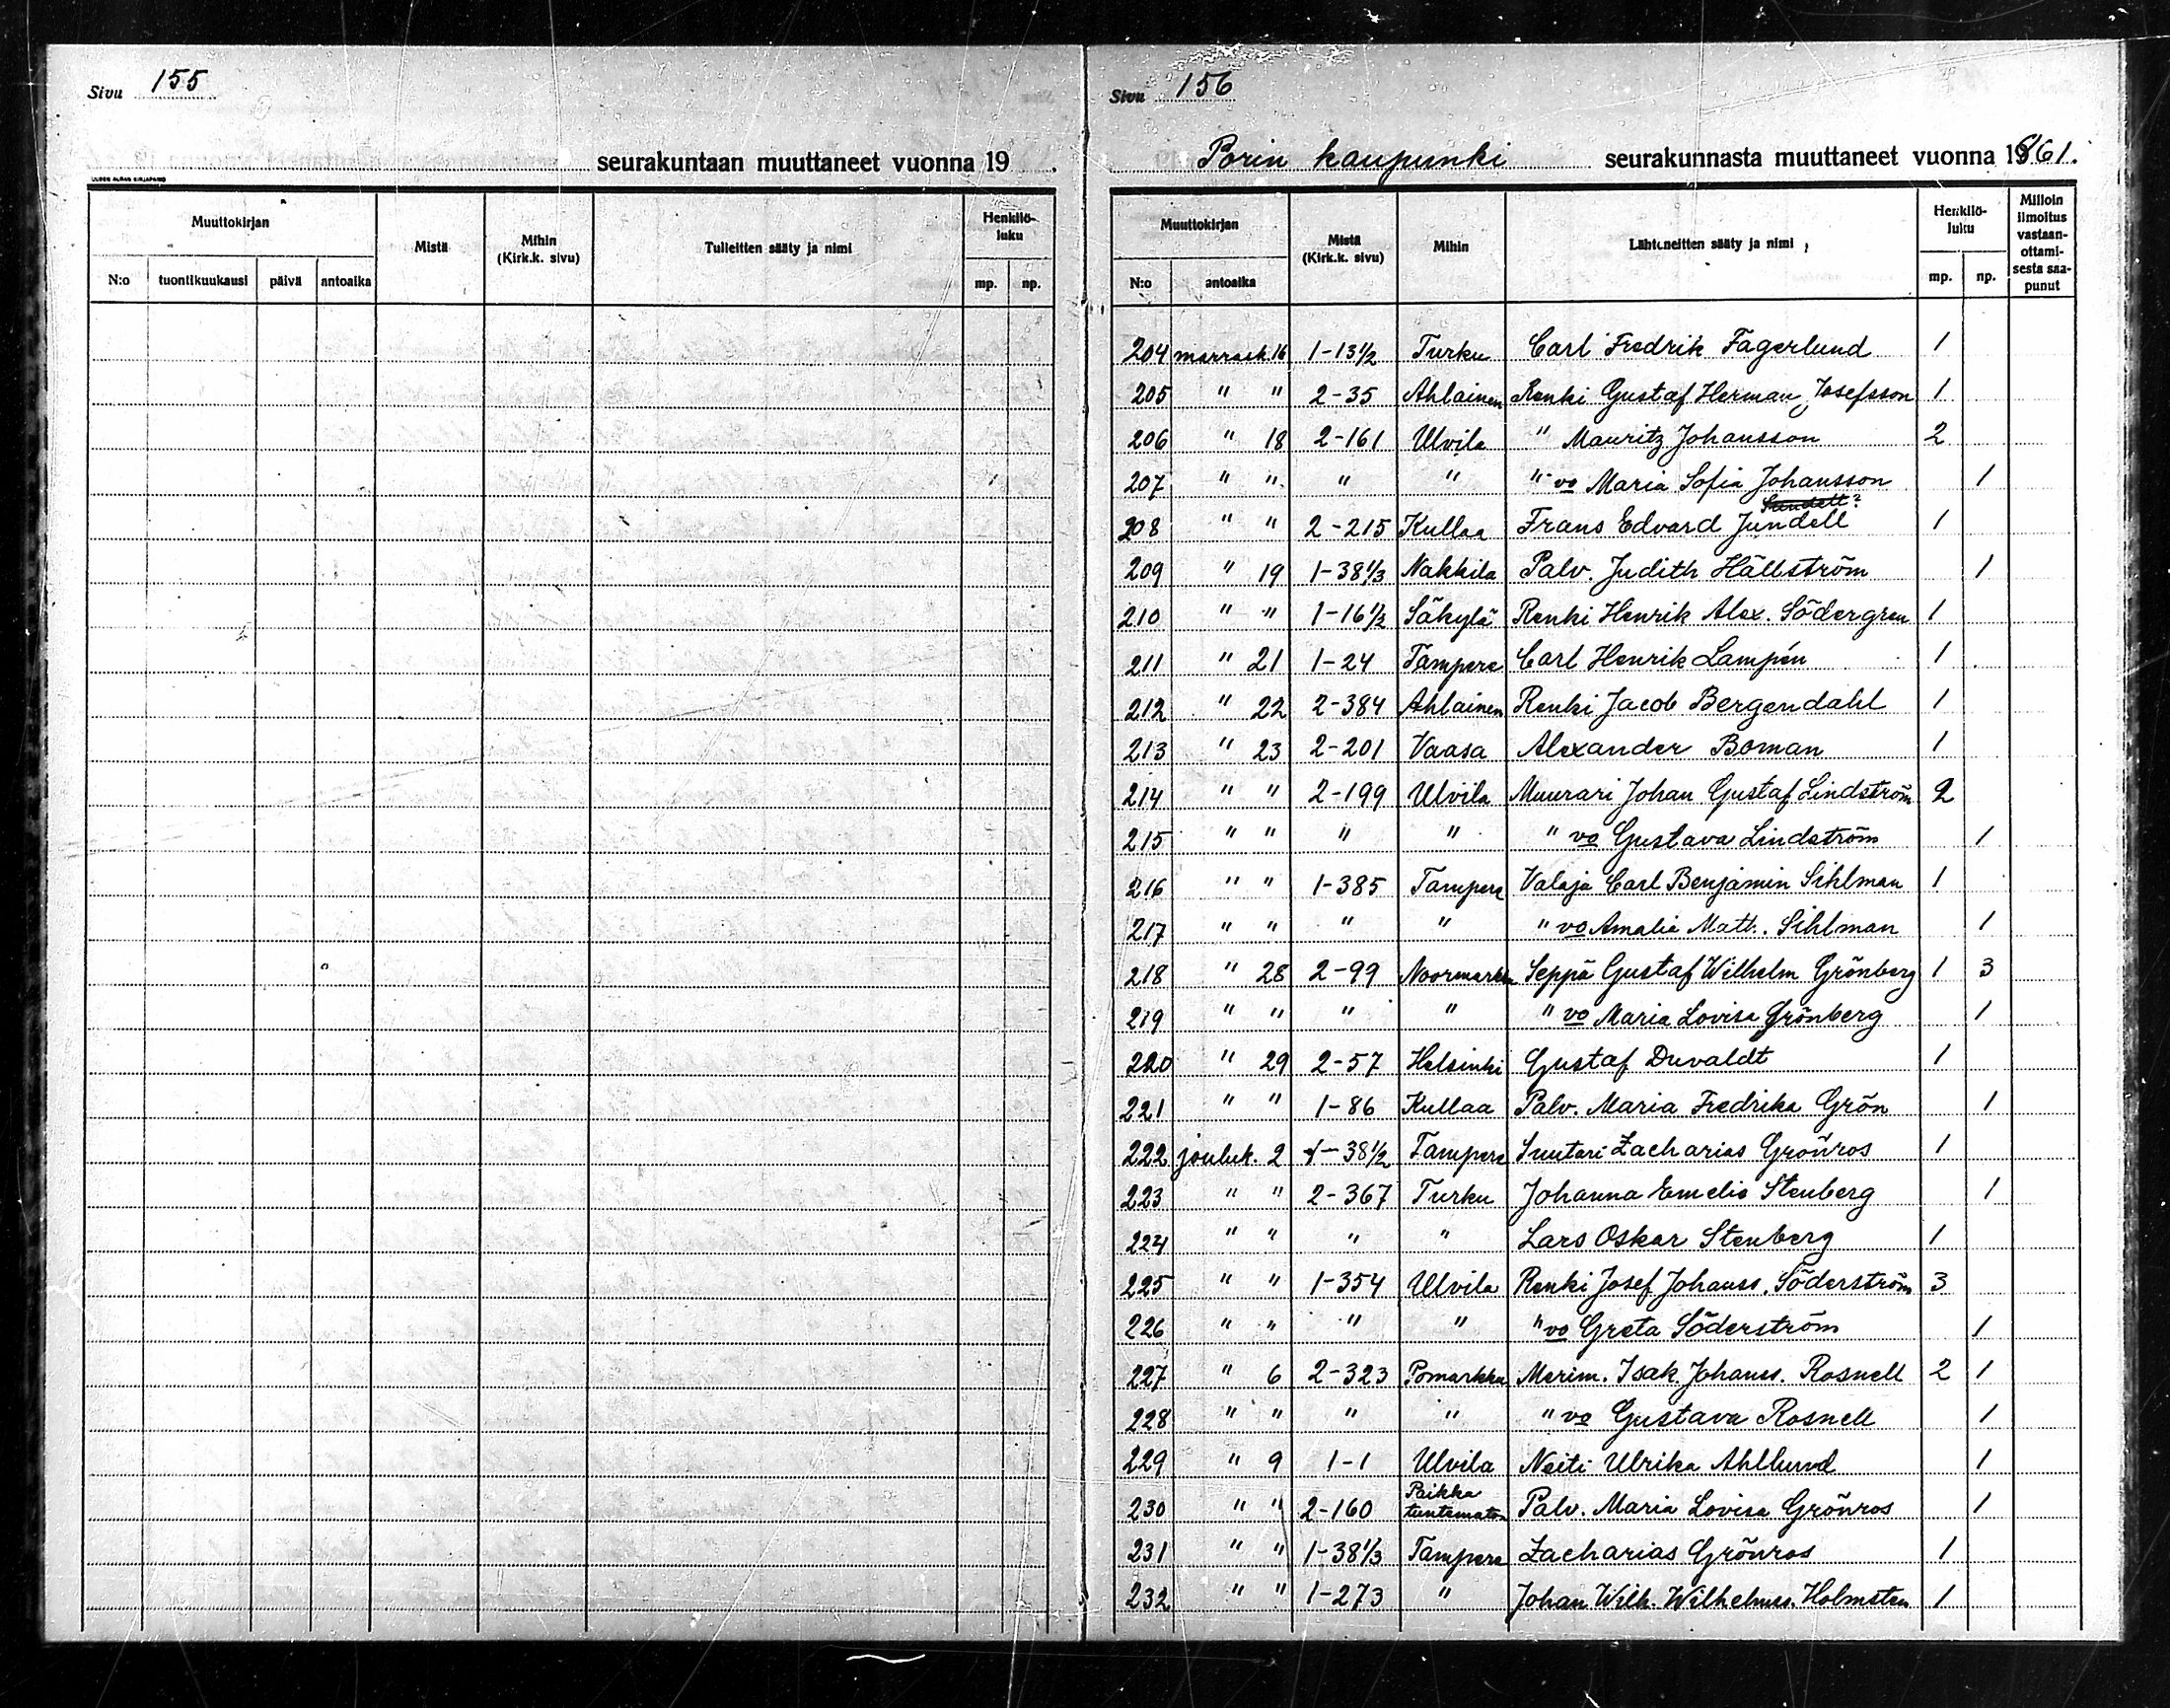 Sivu 155
seurakuntaan muuttaneet vuonna 19 .
UUDEN AURAN KIRJAPAINO
Muuttokirjan
Mistä
Mihin (Kirk.k. sivu)
Tulleitten sääty ja nimi
Henkilö-luku
N:o tuontikuukausi päivä antoaika mp. np.
Sivu 156
Porin kaupunki seurakunnasta muuttaneet vuonna 1861.
Muuttokirjan
Mistä (Kirk.k. sivu)
Mihin
Lähteneitten sääty ja nimi
Henkilö-luku
Milloin ilmoitus vastaan-ottami-sesta saa-punut
N:o antoaika mp. np.
204 marrask. 16 1-13 1/2 Turku Carl Fredrik Fagerlund 1
205 " " 2-35 Ahlainen Renki Gustaf Herman Josefsson 1
206 " 18 2-161 Ulvila " Mauritz Johansson 2
207 " " " " " vo Maria Sofia Johansson 1
Sundell?
208 " " 2-215 Kullaa Frans Edvard Jundell 1
209 " 19 1-38 1/3 Nakkila Palv. Judith Hällström 1
210 " " 1-16 1/2 Säkylä Renki Henrik Alex. Södergren 1
211 " 21 1-24 Tampere Carl Henrik Lampén 1
212 " 22 2-384 Ahlainen Renki Jacob Bergendahl 1
213 " 23 2-201 Vaasa Alexander Boman 1
214 " " 2-199 Ulvila Muurari Johan Gustaf Lindström 2
215 " " " " " vo Gustava Lindström 1
216 " " 1-385 Tampere Valaja Carl Benjamin Sihlman 1
217 " " " " " vo Amalia Math. Sihlman 1
218 " 28 2-99 Noormarkku Seppä Gustaf Wilhelm Grönberg 1 3
219 " " " " " vo Maria Lovisa Grönberg 1
220 " 29 2-57 Helsinki Gustaf Duvaldt 1
221 " " 1-86 Kullaa Palv. Maria Fredrika Grön 1
222 jouluk. 2 1-38 1/2 Tampere Suutari Zacharias Grönros 1
223 " " 2-367 Turku Johanna Emelie Stenberg 1
224 " " " " Lars Oskar Stenberg 1
225 " " 1-354 Ulvila Renki Josef Johanss. Söderström 3
226 " " " " " vo Greta Söderström 1
227 " 6 2-323 Pomarkku Merim. Isak Johanss. Rosnell 2 1
228 " " " " " vo Gustava Rosnell 1
229 " 9 1-1 Ulvila Neiti Ulrika Ahllund 1
230 " " 2-160 Paikka tuntematon Palv. Maria Lovisa Grönros 1
231 " " 1-38 1/3 Tampere Zacharias Grönros 1
232 " " 1-273 " Johan Wilh. Wilhelmss. Holmsten 1